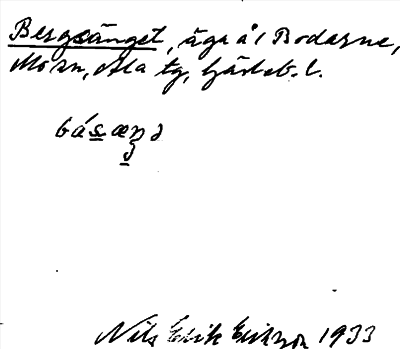 Bergsänget, äga å 1 Bodarne,
Mo sn, Ala tg, Gävleb. l.
básæŋə
Nils Erik Eriksson 1933